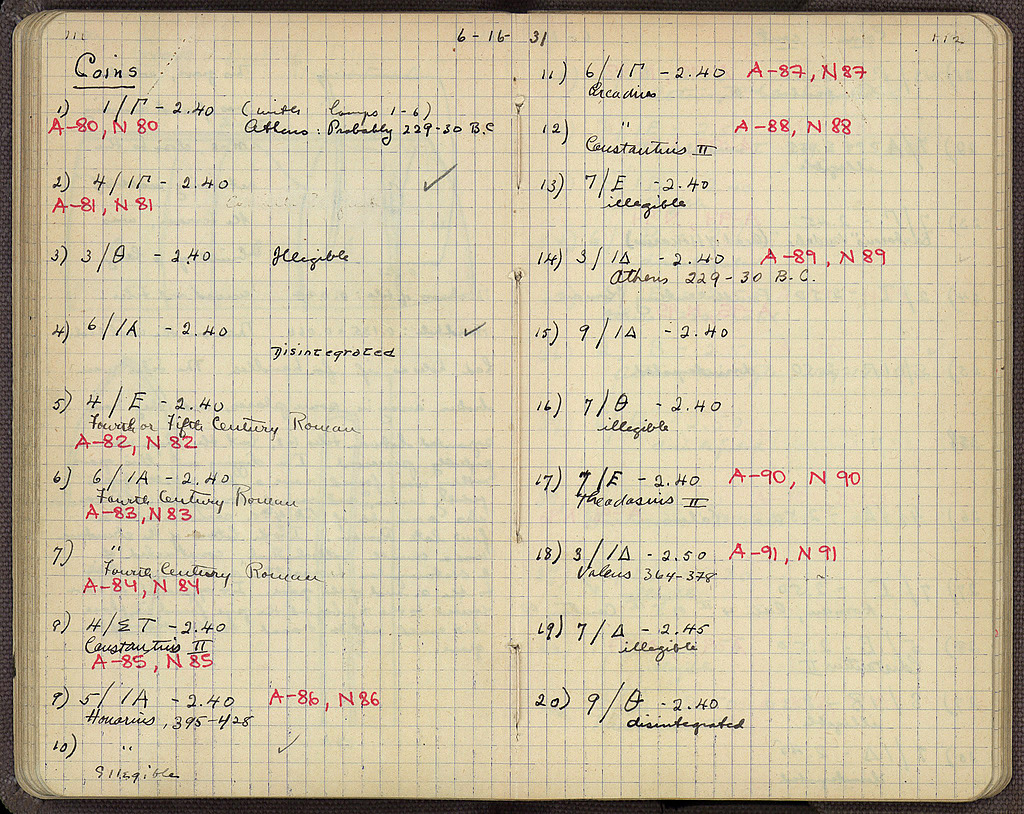 111
Coins
1) 1/Γ - 2.40 (with lamps 1-6)
A-80, N 80 Athens: Probably 229-30 B.C
2) 4/ΙΓ - 2.40
A-81, N 81
3) 3/Θ - 2.40 Illegible
4) 6/ΙΑ - 2.40
Disintegrated
5) 4/Ε - 2.40
Fourth or Fifth Century Roman
A-82, N 82
6) 6/ΙΑ - 2.40
Fourth Century Roman
A-83, N 83
7) "
Fourth Century Roman
A-84, N 84
8) 4/ΣΤ - 2.40
Constantius II
A-85, N 85
9) 5/ΙΑ - 2.40 A-86, N 86
Honorius, 395-428
10) "
Illegible
6-16-31
112
11) 6/ΙΓ - 2.40 A-87, N 87
Arcadius
12) " A-88, N 88
Constantius II
13) 7/Ε - 2.40
illegible
14) 3/ΙΔ - 2.40 A-89, N 89
Athens 229-30 B.C.
15) 9/ΙΔ - 2.40
16) 7/Θ - 2.40
illegible
17) 7/Ε - 2.40 A-90, N 90
Theodosius II
18) 3/ΙΔ - 2.50 A-91, N 91
Valens 364-378
19) 7/Δ - 2.45
illegible
20) 9/Θ - 2.40
disintegrated